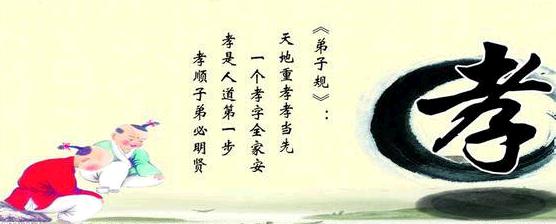 《弟子规》：
天地重孝孝当先
一个孝字全家安
孝是人道第一步
孝顺子弟必明贤
孝